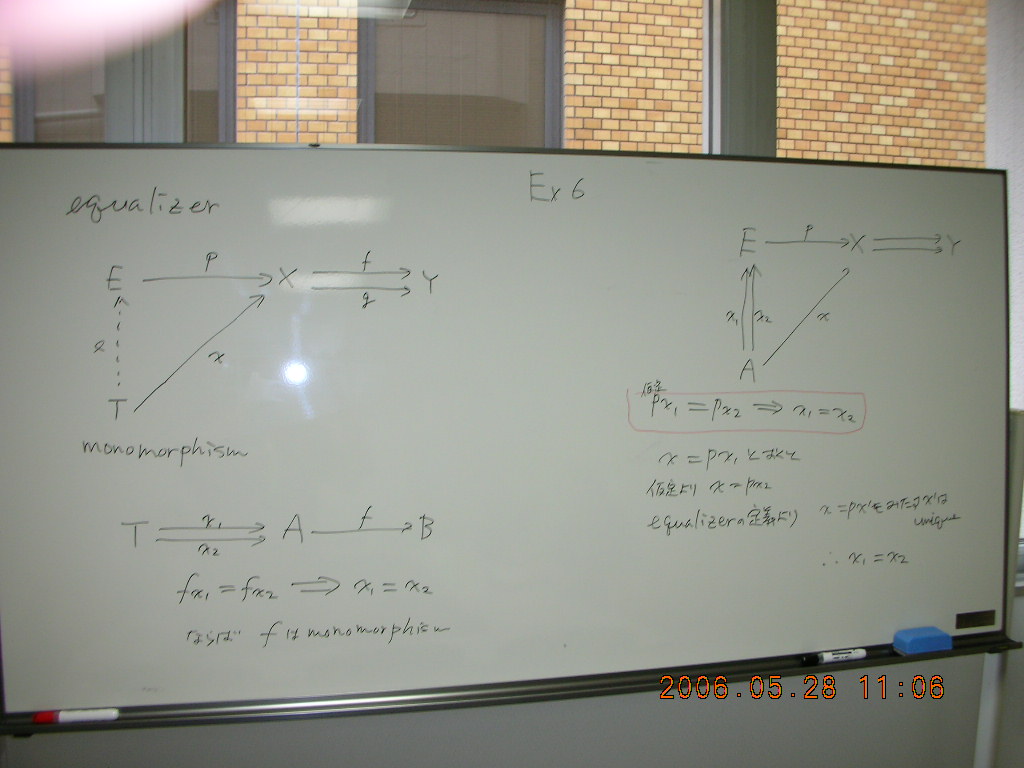 equalizer
E p X f g Y
e x
T
monomorphism
T x₁ x₂ A f B
fx₁ = fx₂ ⟹ x₁ = x₂
ならば f は monomorphism
Ex 6
E p X Y
x₁ x₂ x
A
仮定
px₁ = px₂ ⟹ x₁ = x₂
x = px₁ とおくと
仮定より x = px₂
equalizerの定義より x = px'をみたすx'は
unique
∴ x₁ = x₂
2006.05.28 11:06